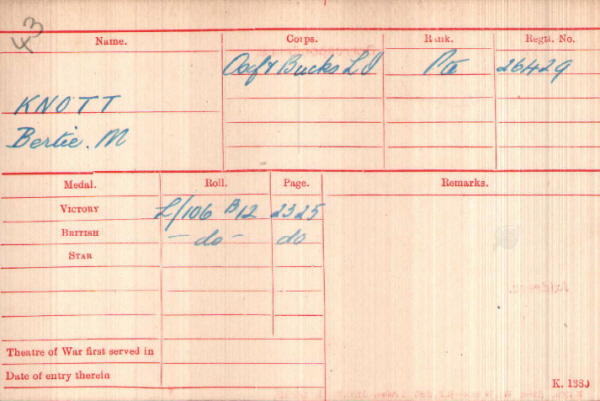 43
Name. Corps. Rank. Regtl. No.
Oxf & Bucks L I Pte 26429
KNOTT
Bertie. M
Medal. Roll. Page. Remarks.
VICTORY L/106 B12 2325
BRITISH - do - do
STAR
Theatre of War first served in
Date of entry therein
K. 1380